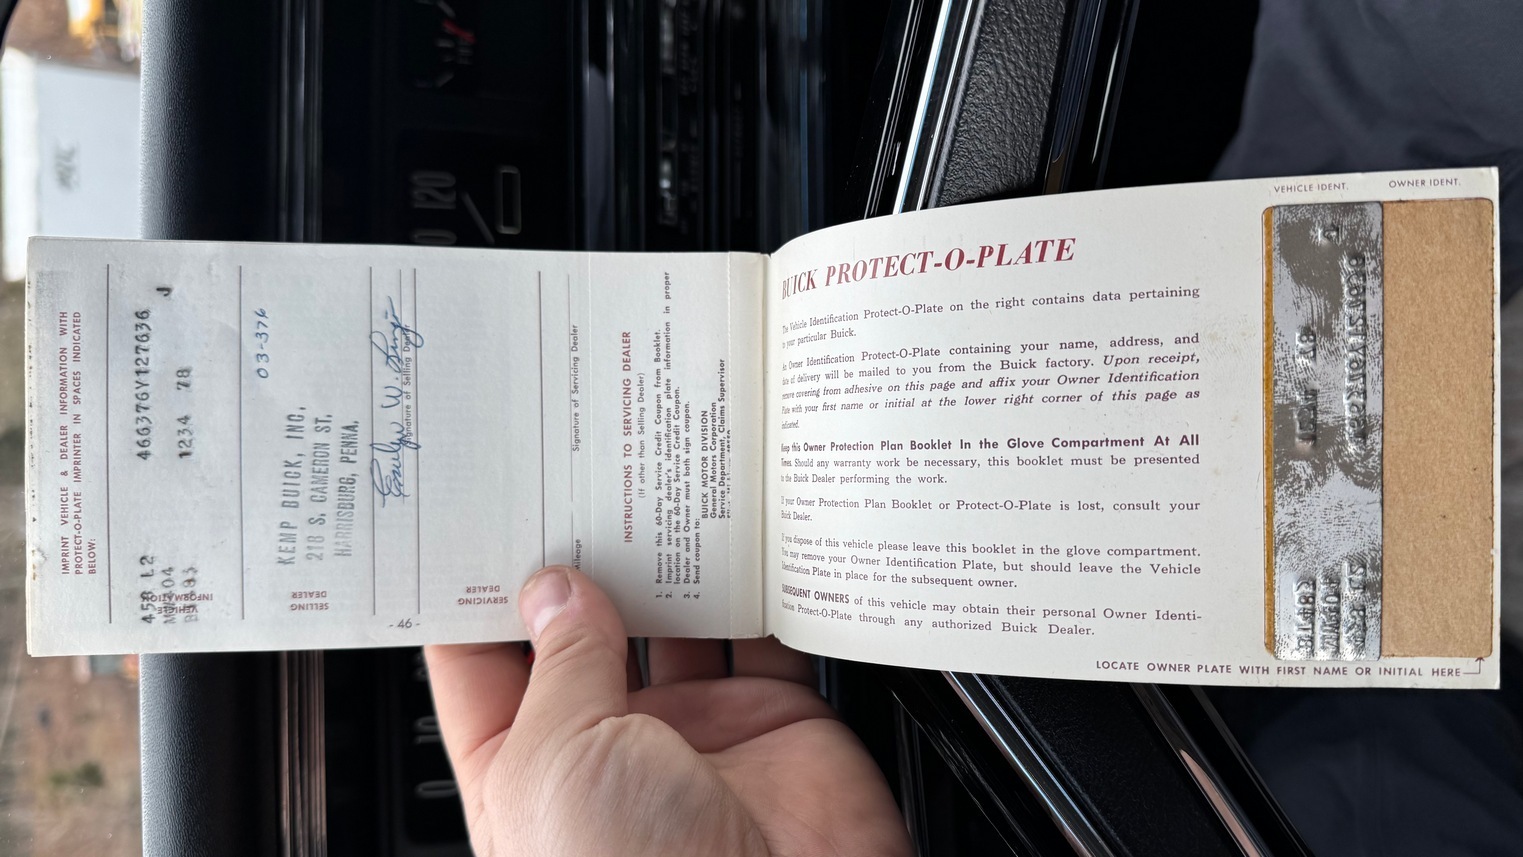 IMPRINT VEHICLE & DEALER INFORMATION WITH
PROTECT-O-PLATE IMPRINTER IN SPACES INDICATED
BELOW:
458 L2 466376Y127636 J
1234 78
VEHICLE
INFORMATION
03-376
KEMP BUICK, INC,
218 S. CAMERON ST.
HARRISBURG, PENNA.
SELLING
DEALER
Signature of Selling Dealer
- 46 -
SERVICING
DEALER
Mileage
Signature of Servicing Dealer
INSTRUCTIONS TO SERVICING DEALER
(If other than Selling Dealer)
1. Remove this 60-Day Service Credit Coupon from Booklet.
2. Imprint servicing dealer's identification plate information in proper
location on the 60-Day Service Credit Coupon.
3. Dealer and Owner must both sign coupon.
4. Send coupon to:
BUICK MOTOR DIVISION
General Motors Corporation
Service Department, Claims Supervisor
BUICK PROTECT-O-PLATE
The Vehicle Identification Protect-O-Plate on the right contains data pertaining
to your particular Buick.
An Owner Identification Protect-O-Plate containing your name, address, and
date of delivery will be mailed to you from the Buick factory. Upon receipt,
remove covering from adhesive on this page and affix your Owner Identification
Plate with your first name or initial at the lower right corner of this page as
indicated.
Keep this Owner Protection Plan Booklet In the Glove Compartment At All
Times. Should any warranty work be necessary, this booklet must be presented
to the Buick Dealer performing the work.
If your Owner Protection Plan Booklet or Protect-O-Plate is lost, consult your
Buick Dealer.
If you dispose of this vehicle please leave this booklet in the glove compartment.
You may remove your Owner Identification Plate, but should leave the Vehicle
Identification Plate in place for the subsequent owner.
SUBSEQUENT OWNERS of this vehicle may obtain their personal Owner Identi-
fication Protect-O-Plate through any authorized Buick Dealer.
VEHICLE IDENT. OWNER IDENT.
LOCATE OWNER PLATE WITH FIRST NAME OR INITIAL HERE
120
0